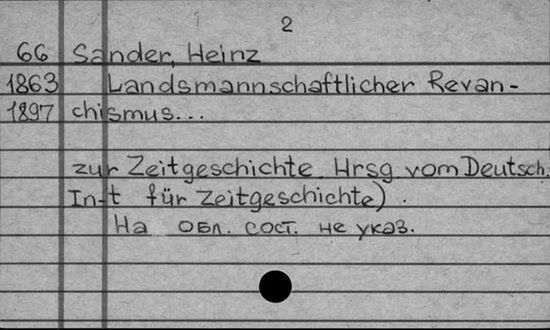 2
66 Sander, Heinz
1863 Landsmannschaftlicher Revan-
1897 chismus...
zur Zeitgeschichte. Hrsg vom Deutsch.
In-t für Zeitgeschichte).
На обл. сост. не указ.